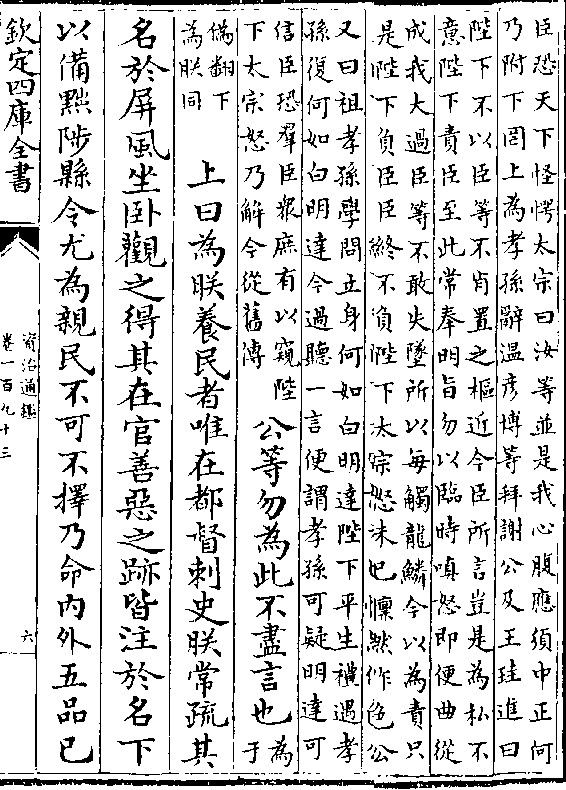 臣恐天下怪愕太宗曰汝等並是我心腹應須中正何
乃附下罔上為孝孫辭溫彦博等拜謝公及王珪進曰
陛下不以臣等不肖置之樞近今臣所言豈是為私不
意陛下責臣至此常奉明旨勿以臨時嗔怒即便曲從
成我大過臣等不敢失墜所以每觸龍鱗今以為責只
是陛下負臣臣終不負陛下太宗怒未已懍然作色公
又曰祖孝孫學問立身何如白明達陛下平生禮遇孝
孫復何如白明達今過聽一言便謂孝孫可疑明達可
信臣恐羣臣衆庶有以窺陛
下太宗怒乃解今從舊傳
公等勿為此不盡言也為于
偽翻下
為朕同
上曰為朕養民者唯在都督刺史朕常疏其
名於屏風坐卧觀之得其在官善惡之跡皆注於名下
以備黜陟縣令尤為親民不可不擇乃命内外五品已
欽定四庫全書
資治通鑑
卷一百九十三
六